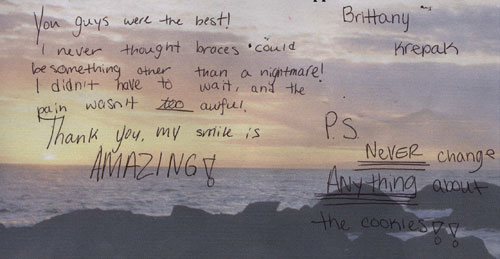 You guys were the best!
I never thought braces could
be something other than a nightmare!
I didn't have to wait, and the
pain wasn't too awful.
Thank you, my smile is
AMAZING!
Brittany
Krepak
P.S.
NEVER change
ANything about
the cookies!!